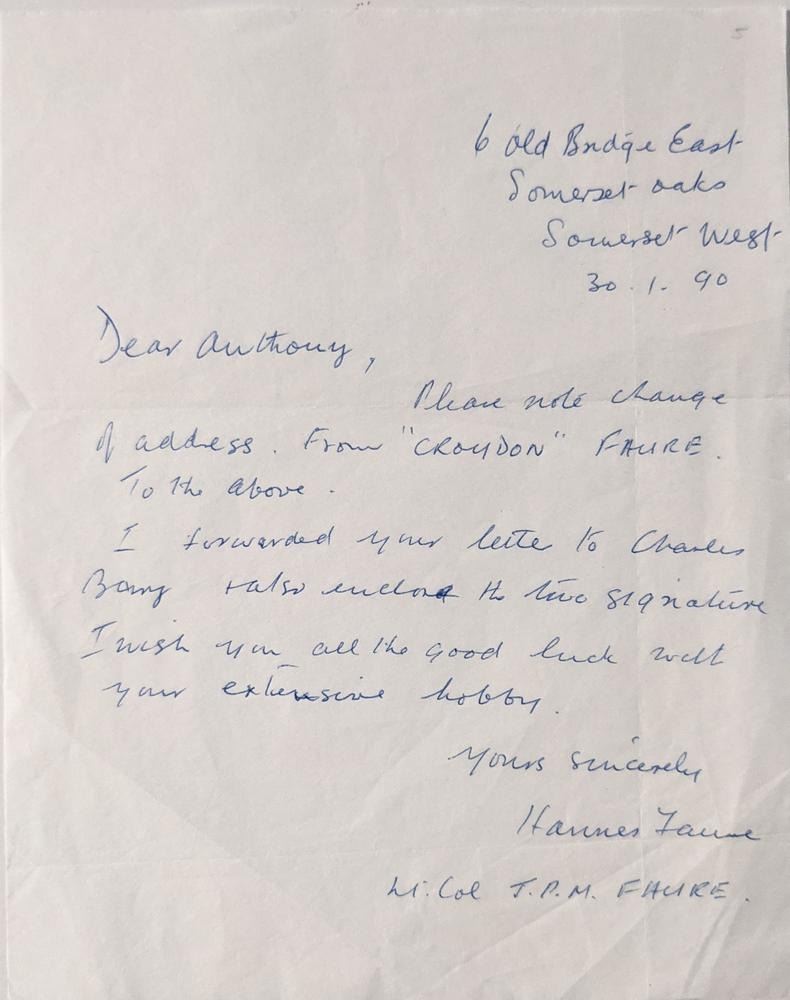 6 Old Bridge East
Somerset oaks
Somerset West
30.1.90
Dear Anthony,
Please note change
of address. From "CROYDON" FAURE.
To the above.
I forwarded your letter to Charles
+ also enclosed the two signature
I wish you all the good luck with
your extensive hobby.
Yours sincerely
Hannes Faure
Lt. Col J.P.M. FAURE.